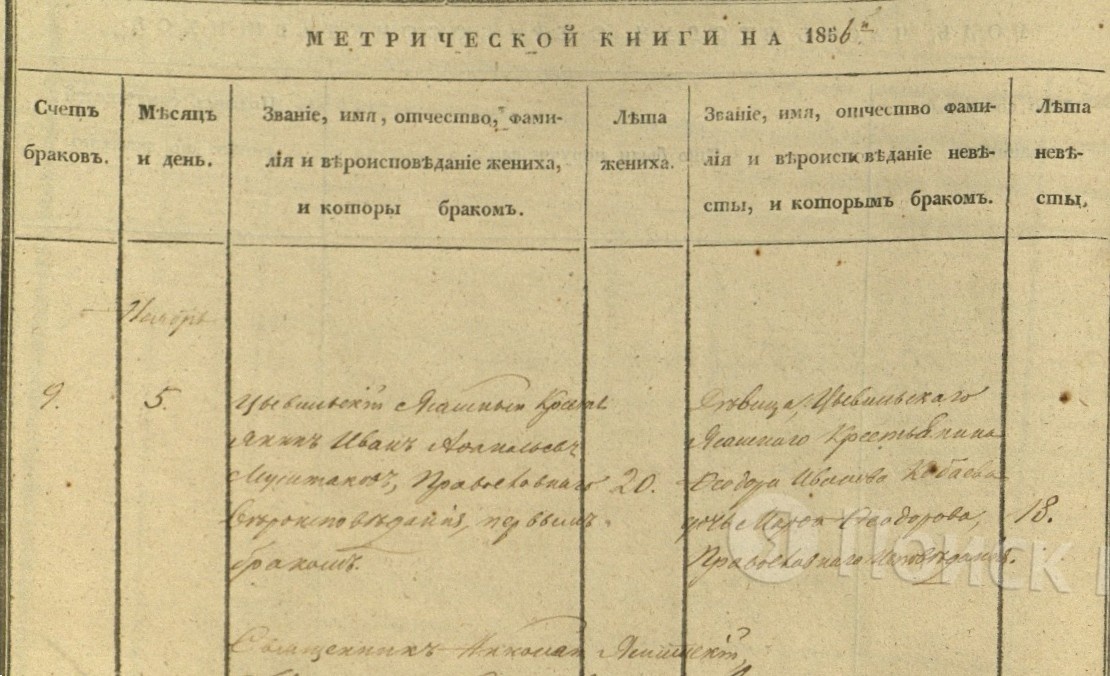 МЕТРИЧЕСКОЙ КНИГИ НА 1856
Счетъ браковъ.
Мѣсяцъ и день.
Званіе, имя, отчество, фами-
лія и вѣроисповѣданіе жениха,
и которы бракомъ.
Лѣта
жениха.
Званіе, имя, отчество фами-
лія и вѣроисповѣданіе невѣ-
сты, и которымъ бракомъ.
Лѣта
невѣ-
сты.
Ноябрь
9.
5.
Крестья
янинъ Иванъ
Православнаго
Вѣроисповѣданія, первымъ
бракомъ.
20.
Дѣвица,
Крестьянина
Ѳеодора Иванова
дочь Ѳеодорова,
Православнаго Исповѣданія.
18.
Священникъ Николай
Поиск